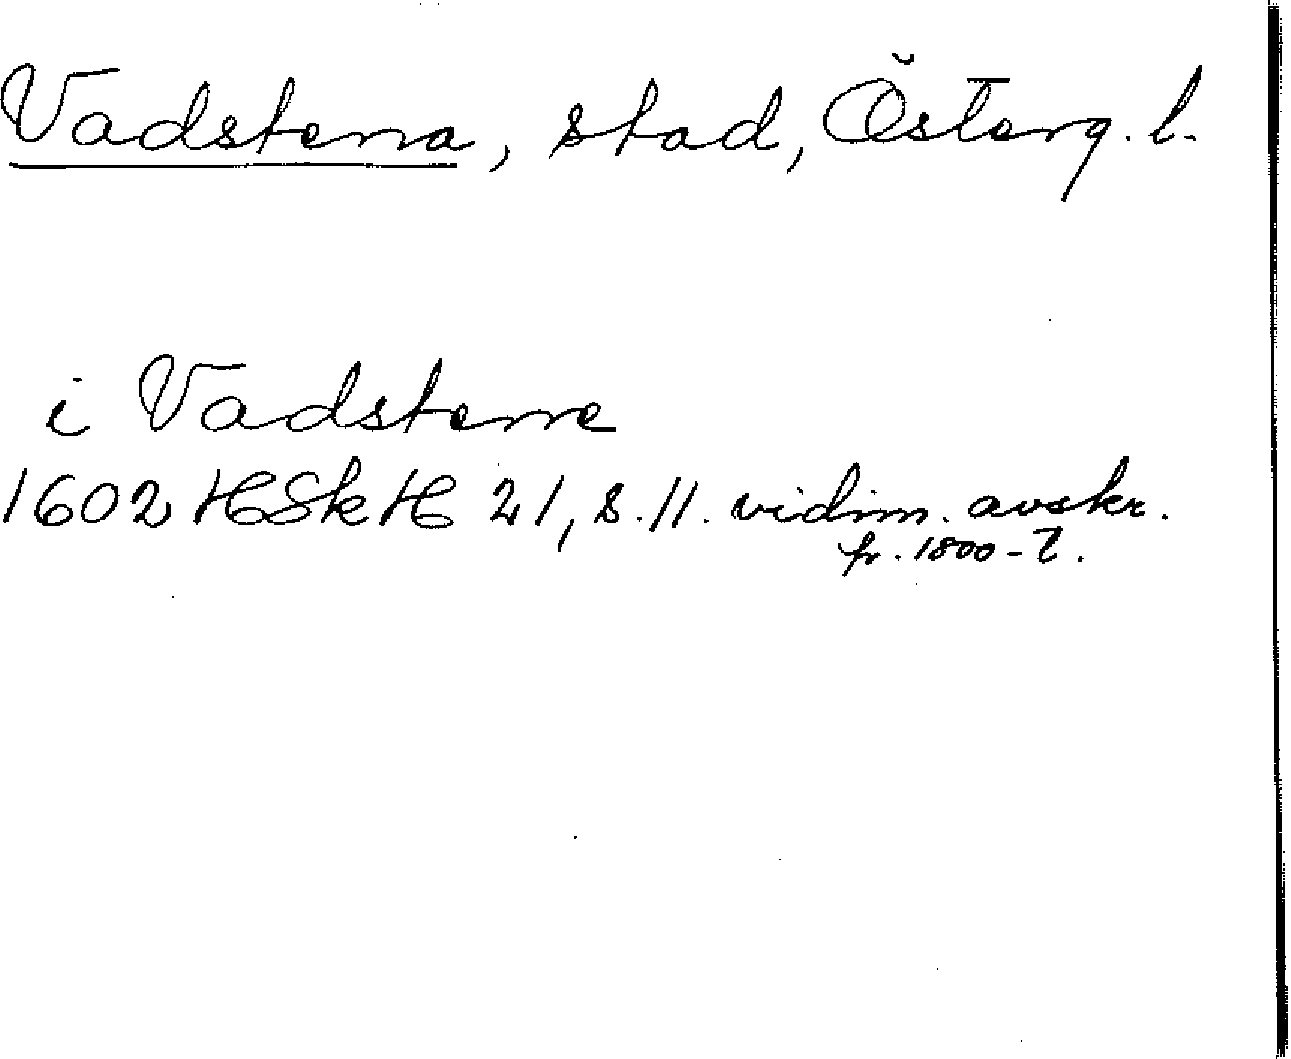 Vadstena, stad, Österg. l.
i Vadstene
1602 HSkH 21, s. 11. vidim. avskr.
fr. 1800-t.